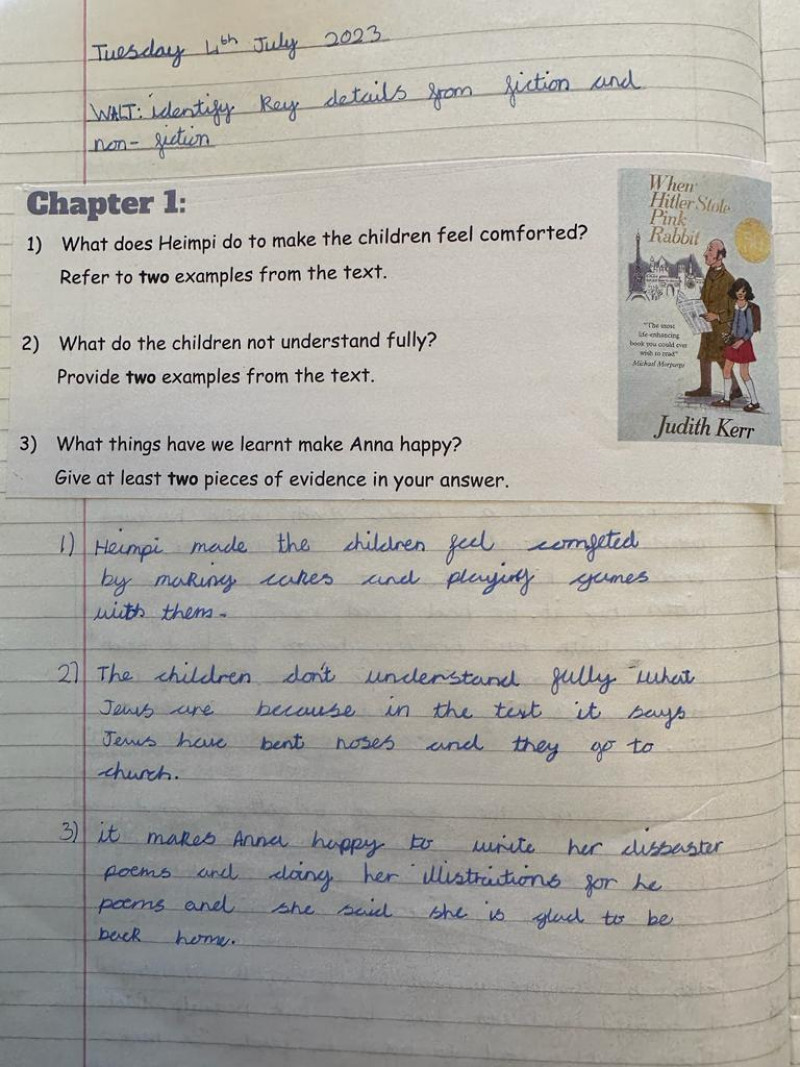 Tuesday 4th July 2023
WALT: identify key details from fiction and
non-fiction
Chapter 1:
1) What does Heimpi do to make the children feel comforted?
Refer to two examples from the text.
2) What do the children not understand fully?
Provide two examples from the text.
3) What things have we learnt make Anna happy?
Give at least two pieces of evidence in your answer.
When
Hitler Stole
Pink
Rabbit
"The most
life-enhancing
book you could ever
wish to read"
Michael Morpurgo
Judith Kerr
1) Heimpi made the children feel comfeted
by making cakes and playing games
with them.
2) The children don't understand fully what
Jews are because in the text it says
Jews have bent noses and they go to
church.
3) it makes Anna happy to write her dissaster
poems and doing her illistrations for he
poems and she said she is glad to be
back home.